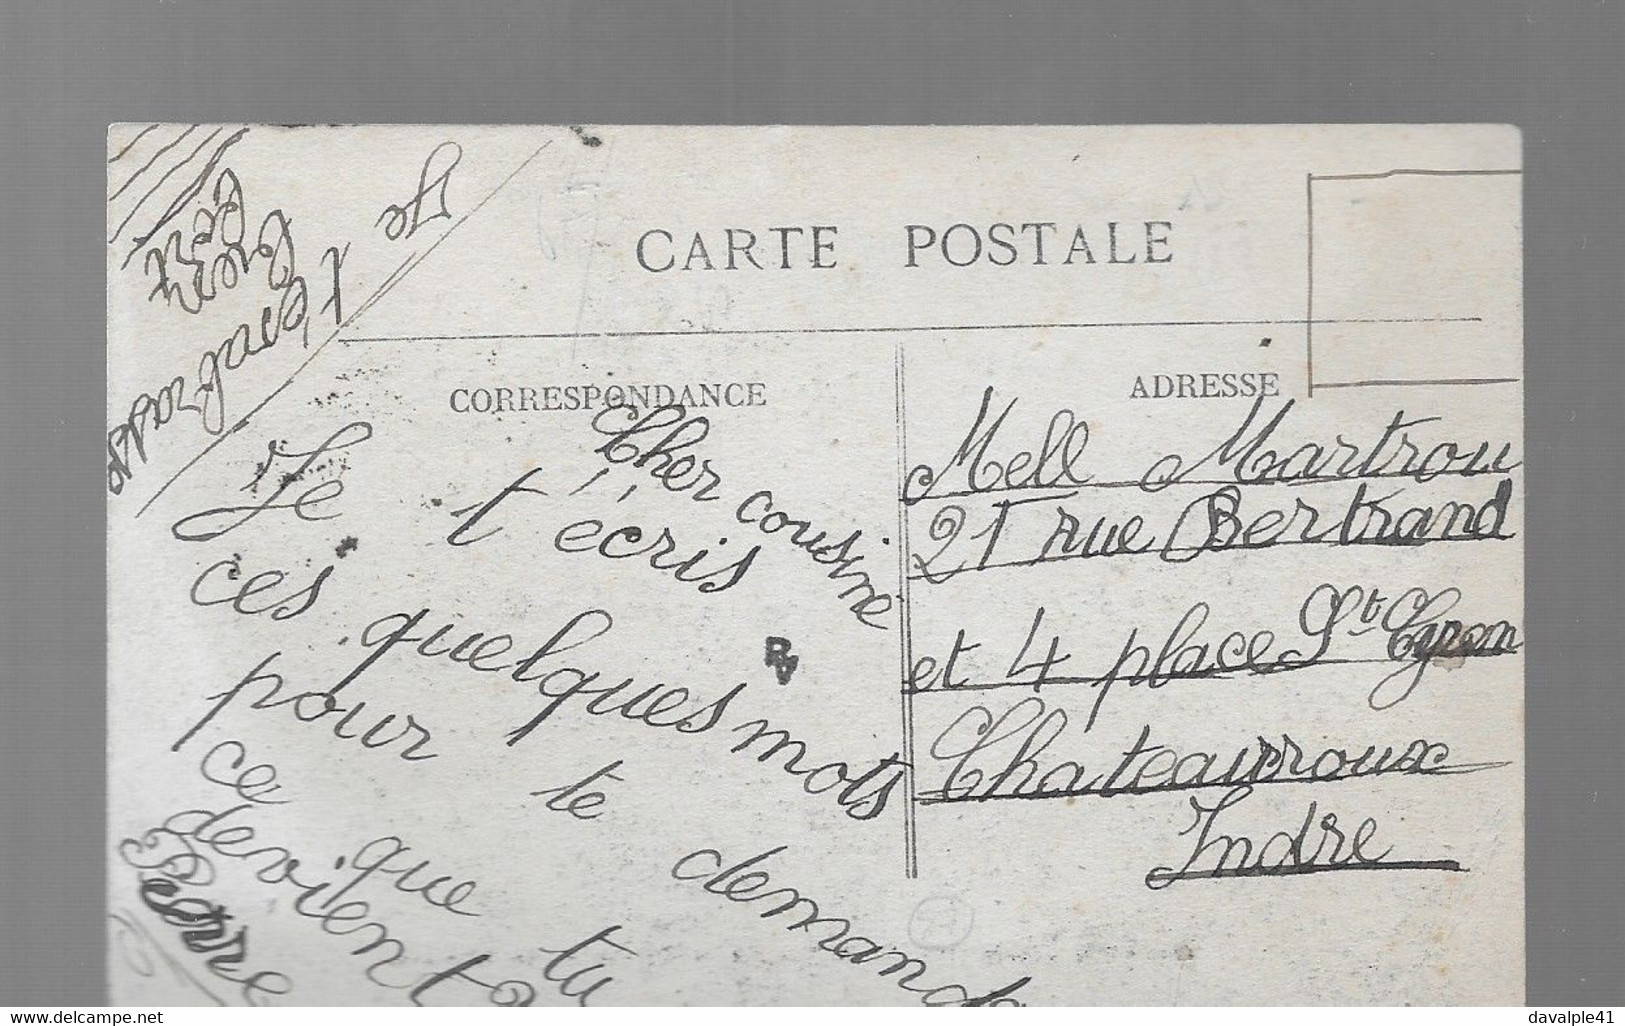 CARTE POSTALE
CORRESPONDANCE
ADRESSE
Cher cousine
Je t'écris
ces quelques mots
pour te demande
ce que tu
devient
Pierre
Je
t'embrasse
bient
Mell Martrou
21 rue Bertrand
et 4 place St Cyran
Chateauroux
Indre
delcampe.net
davalple41